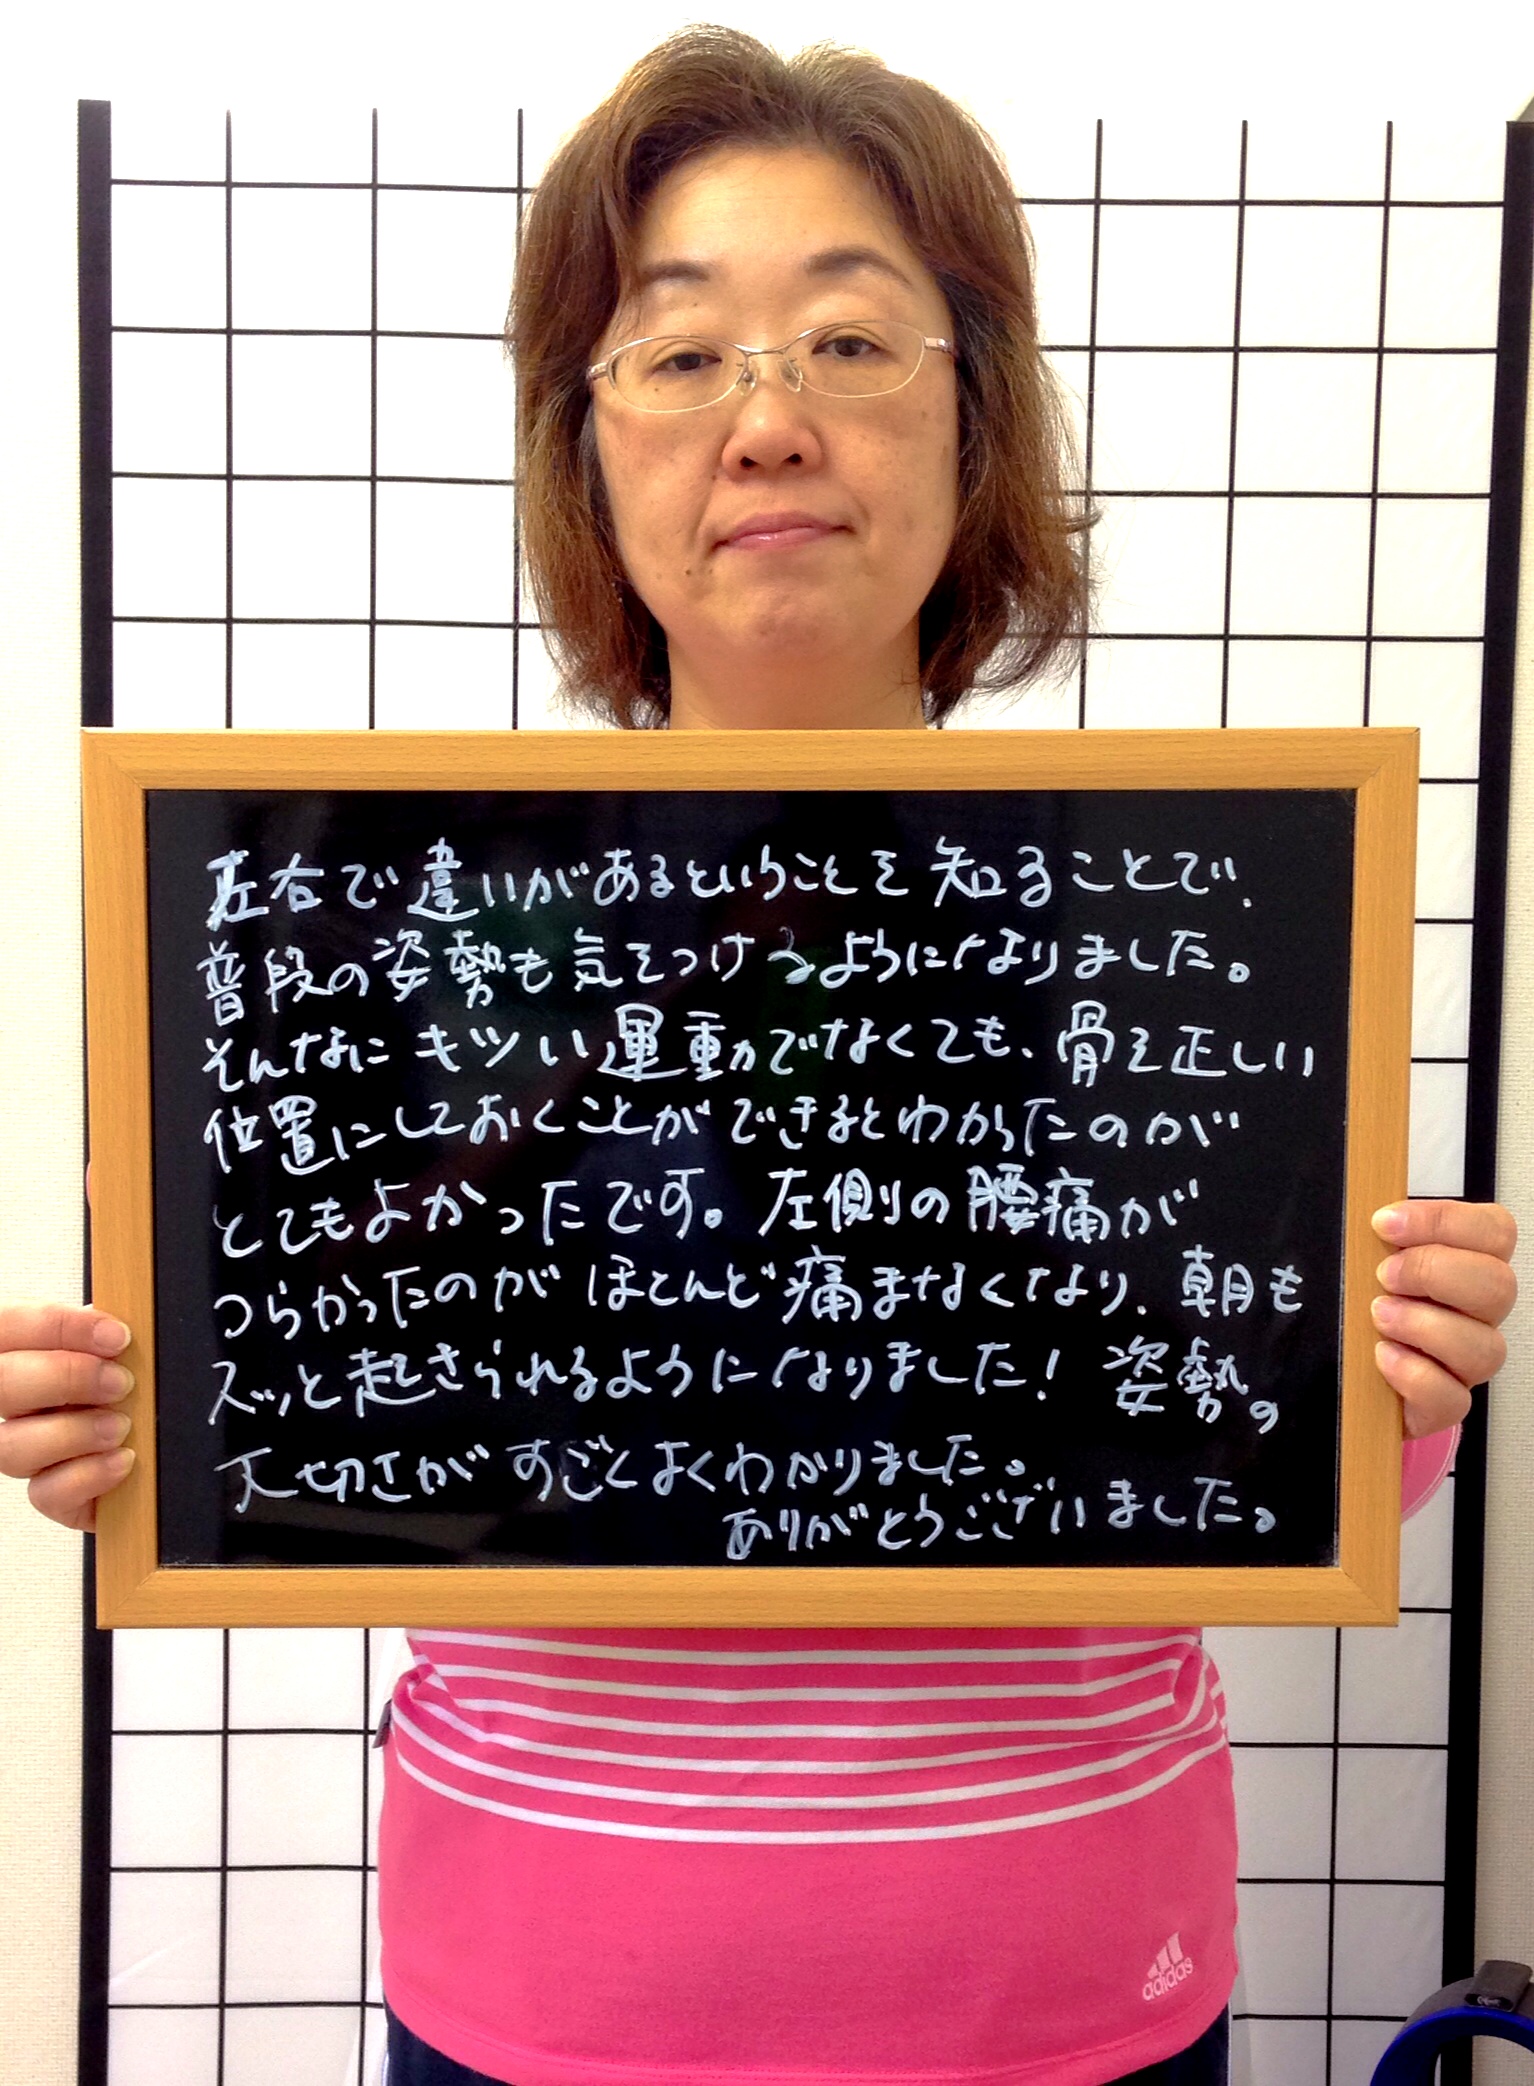 左右で違いがあるということを知ることで、
普段の姿勢も気をつけるようになりました。
そんなにキツい運動でなくても、骨を正しい
位置にしておくことができるとわかったのが
とてもよかったです。左側の腰痛が
つらかったのがほとんど痛まなくなり、朝も
スッと起きられるようになりました！姿勢の
大切さがすごくよくわかりました。
ありがとうございました。
adidas